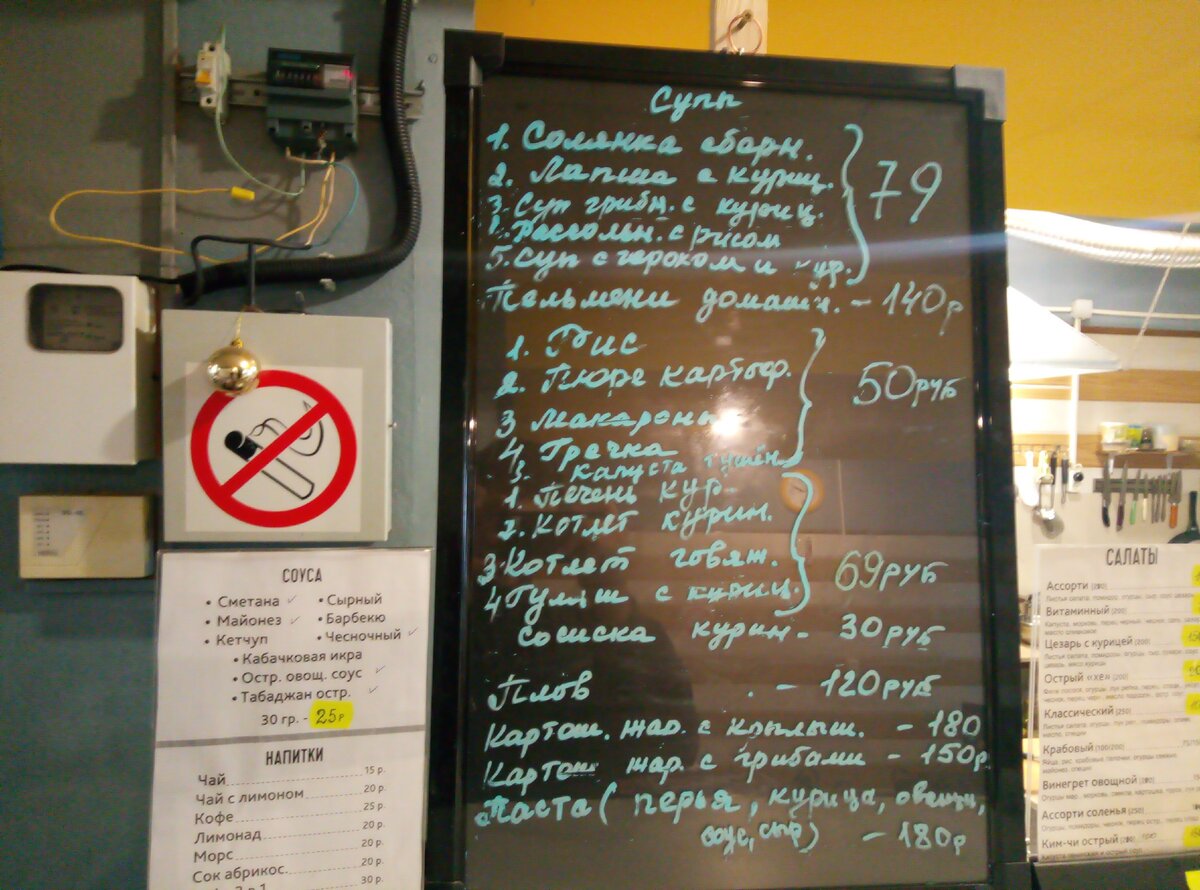 Супы
1. Солянка сборн.
2. Лапша с куриц.
3. Суп грибн. с куриц.
Рассольн. с рисом
5. Суп с горохом и кур.
79
Пельмени домашн. - 140р
1. Рис
2. Пюре картоф.
3 Макароны
4. Гречка
5. Капуста тушён
50 руб
1. Печень кур.
2. Котлет курин.
3. Котлет говяж.
4 Гуляш с куриц.
69 руб
Сосиска курин - 30 руб
Плов - 120 руб
Картош. жар. с крылыш. - 180
Картош жар. с грибами - 150р.
Паста ( перья, курица, овощи,
соус, сыр) - 180р
СОУСА
• Сметана
• Майонез
• Кетчуп
• Сырный
• Барбекю
• Чесночный
• Кабачковая икра
• Остр. овощ. соус
• Табаджан остр.
30 гр. - 25р
НАПИТКИ
Чай 15 р.
Чай с лимоном 20 р.
Кофе 25 р.
Лимонад 20 р.
Морс 20 р.
Сок абрикос. 20 р.
30 р.
САЛАТЫ
Ассорти (280)
Витаминный (200)
Цезарь с курицей (200)
Острый «хе» (200)
Классический (250)
Крабовый (100/200)
Винегрет овощной (180)
Ассорти соленья (250)
Ким-чи острый